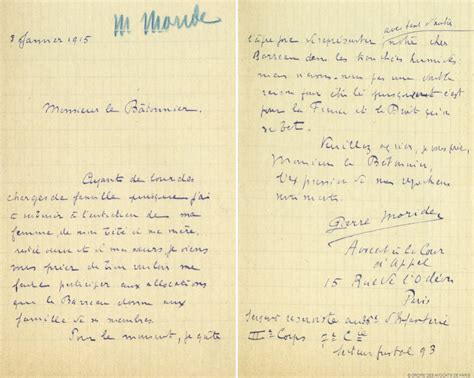 M Moride
3 Janvier 1915
Monsieur le Bâtonnier,
Ayant de lourdes
charges de famille puisque j'ai
à subvenir à l'entretien de ma
femme de mon bébé à ma mère,
veuve et à ma sœur, je viens
vous prier de bien vouloir me
faire participer aux allocations
que le Barreau donne aux
familles de ses membres.
Pour le moment, je
avec tant d'autres
représenter notre cher
Barreau dans les tranchées humides
mais n'avons-nous pas une double
raison pour être là puisque c'est
pour la France et le Droit qu'on
se bat.
Veuillez agréer, je vous prie,
Monsieur le Bâtonnier,
l'expression de mes
sentiments
Pierre Moride
Avocat à la Cour
d'Appel
15 Rue de l'Odéon
Paris
Sergent d'Infanterie
Corps Cie
Secteur postal 93
© ORDRE DES AVOCATS DE PARIS